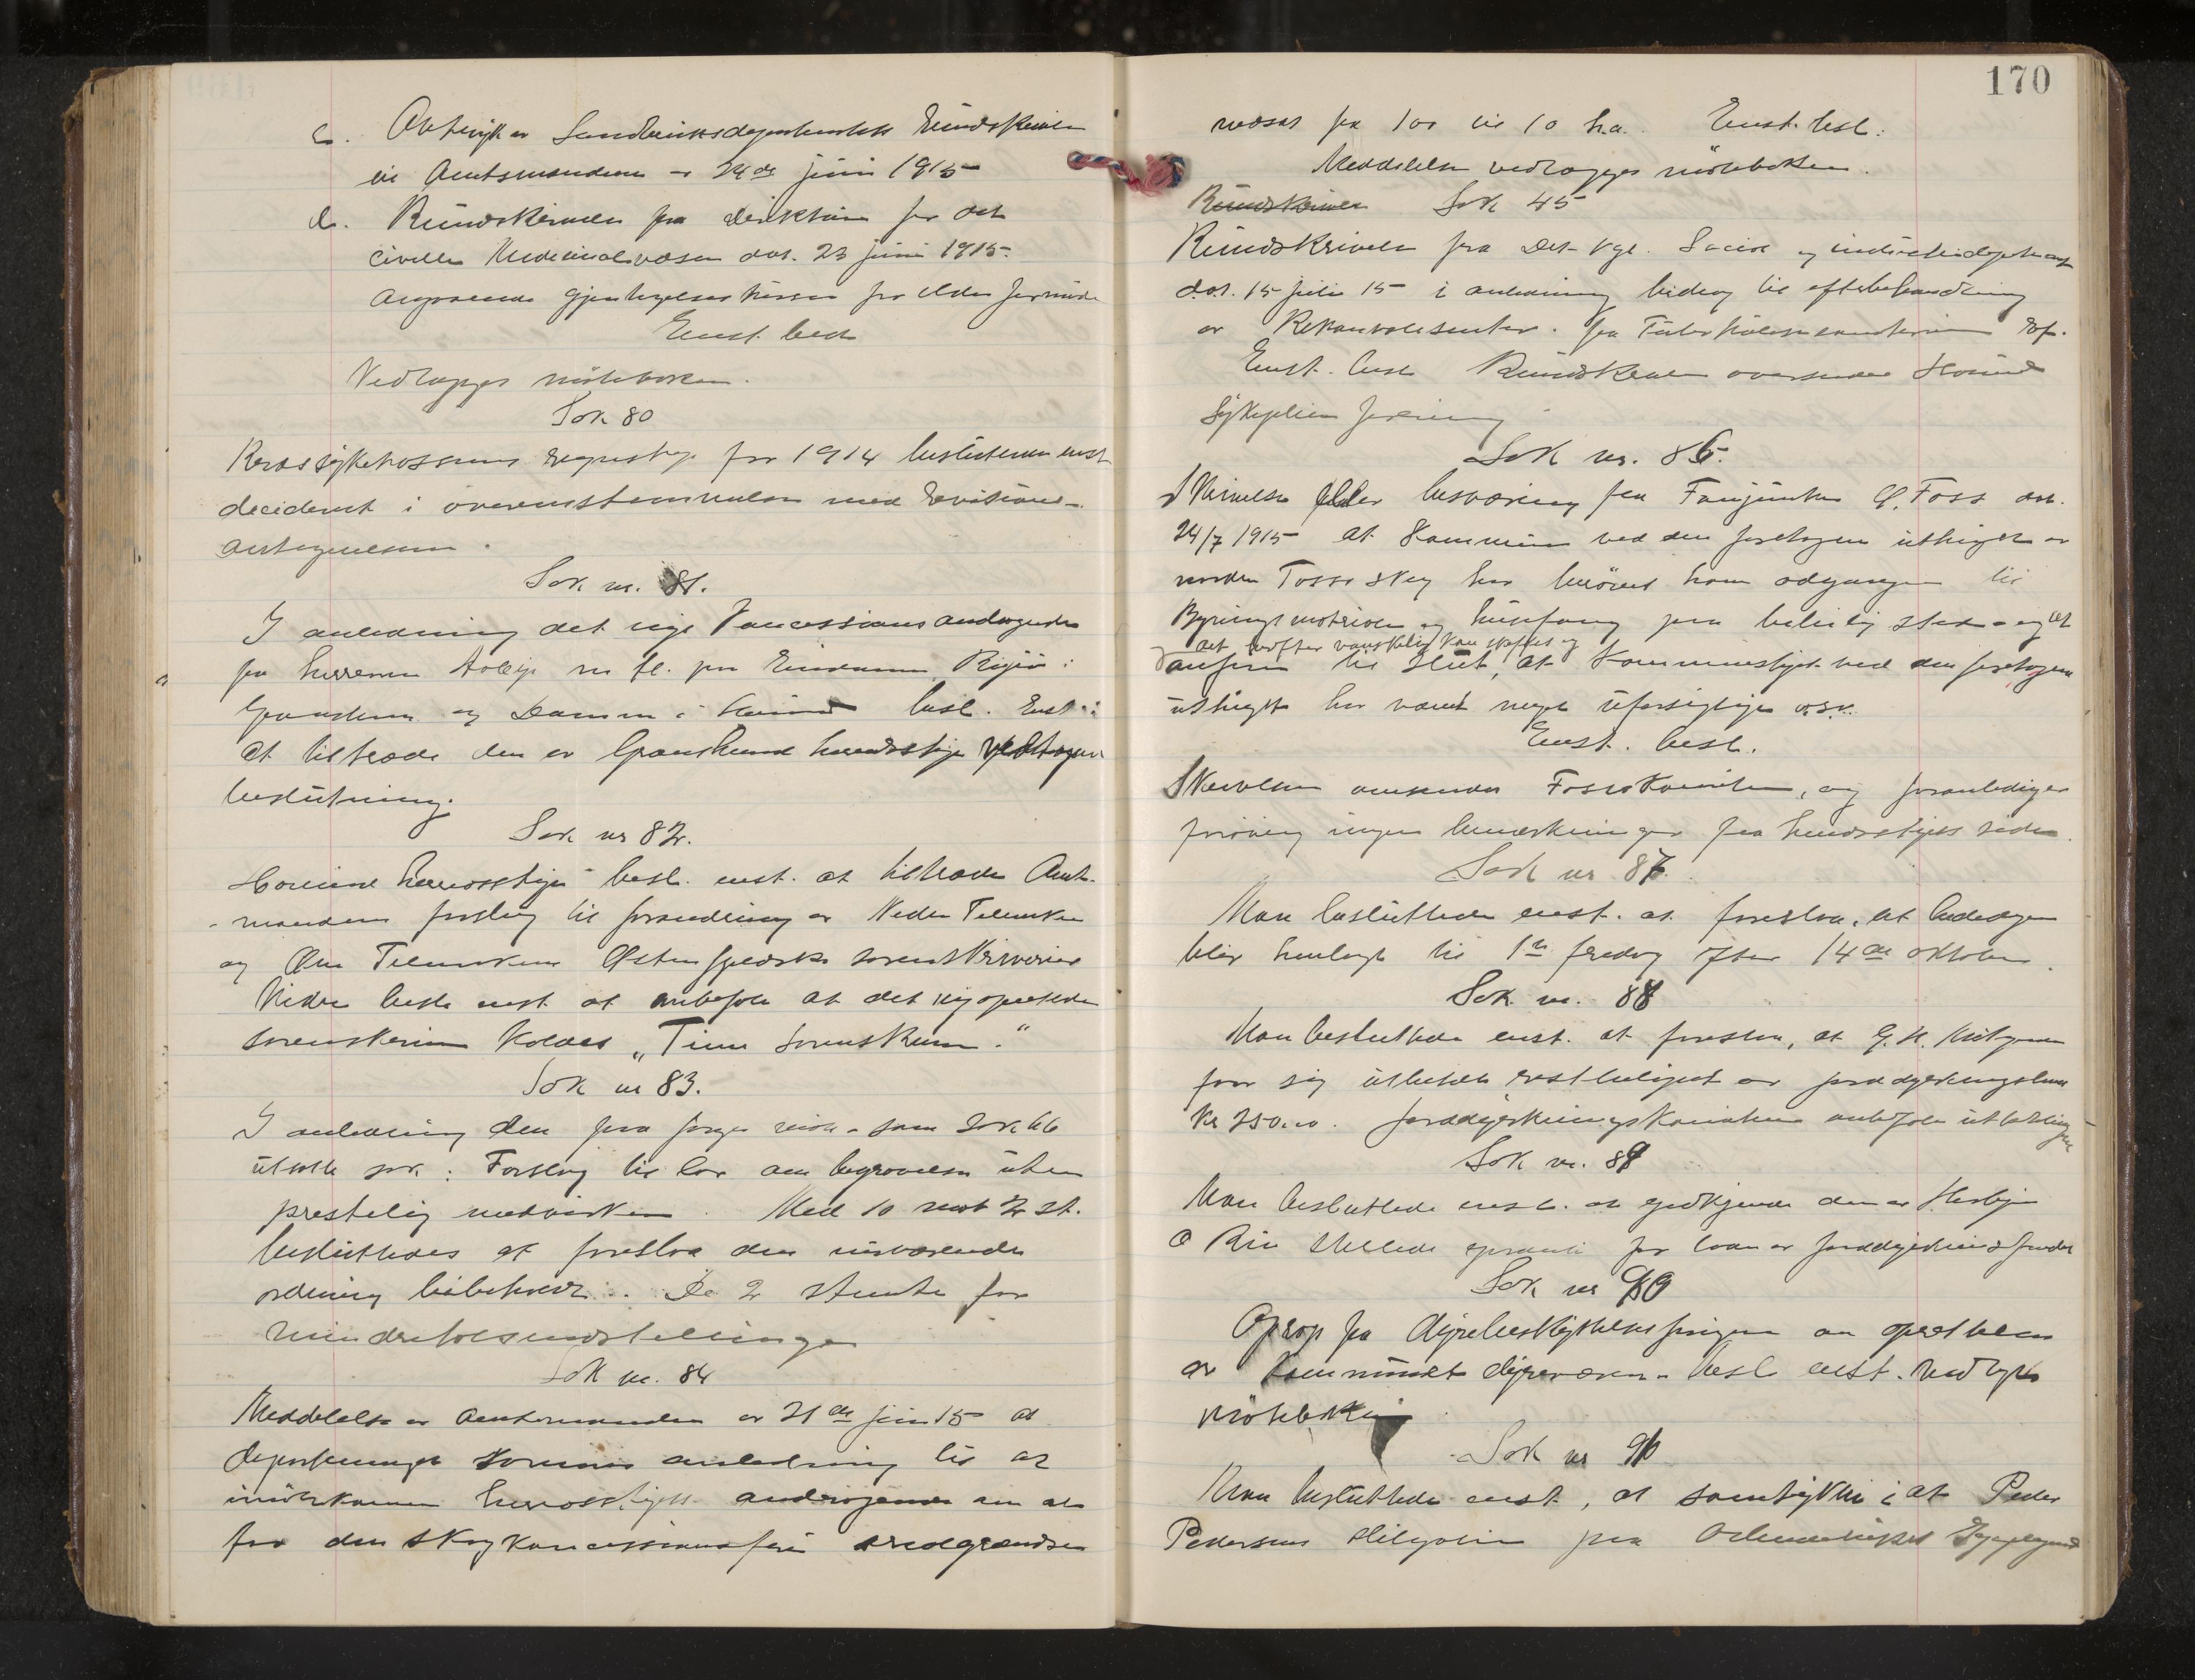 c. Avtryk av Landbruksdepartementets Rundskrivelse
til Amtsmændene av 24de juni 1915
d. Rundskrivelse fra direktören for det
civile Medicinalvæsen dat. 23 juni 1915
angaaende gjentagelseskurser for eldre jormödre
Enst. besl.
Vedlægges möteboken.
Sak 80
Kredssykekassens regnskap for 1914 besluttedes enst.
decidert i overensstemmelse med Revisions-
antegnelserne.
Sak nr. 81.
I anledning det nye Koncessionsandragende
fra herrerne Aall m. fl. paa Eiendommene
Gransherred og i Hovind besl. Enst.
at tiltræde den av Gransherred herredsstyre vedtagne
beslutning.
Sak nr 82.
Hovind herredsstyre besl. enst. at tiltræde Amt-
mandens forslag til forandring av Nedre Telemarken
og Övre Telemarkens Östenfjeldske sorenskriverier
Videre besl. enst. at anbefale at det nyoprettede
sorenskriveri kaldes "Tinn Sorenskriveri."
Sak nr 83.
I anledning den paa forrige möte som sak 66
utsatte sak: Forslag til lov om begravelse uten
prestelig medvirken. Med 10 mot 2 st.
besluttedes at foreslaa den nuværende
ordning bibeholdt. De 2 stemte for
mindretalsindstillingen
Sak nr. 84
Meddelelse av Amtmanden av 21de juni 15 at
departementet anledning til at
imötekomme herredsstyrets andragende om at
faa den skogkoncessionsfri arealgrændse
170
nedsat fra 100 til 10 ha. Enst. besl.:
Meddelelsen vedlægges möteboken.
Rundskrivelse Sak 85
Rundskrivelse fra Det kgl. Social og industridepartement
dat. 15 juli 15 i anledning bidrag til efterbehandling
av Rekonvalesenter fra Tuberkulosesanatorier
Enst. besl. Rundskrivelsen oversendes Hovind
Sykepleieforening
Sak nr. 86.
Skrivelse eller besværing fra Fanejunker G. Foss dat.
24/7 1915 at Kommunen ved den foretagne utskiftning av
norden Fossskog har berövet ham adgangen til
Bygningsmatrialer og husfang paa beleilig sted - og at
det derefter vanskelig kan skaffes og
anförer til slut, at Kommunestyret ved den foretagne
utskiftning har været meget uforsigtige o.s.v.
Enst. besl.
Skrivelsen oversendes Fosskomiteen, og foranlediger
forövrig ingen bemerkninger fra herredsstyrets side.
Sak nr 87.
Man besluttede enst. at foreslaa, at
blir henlagt til 1ste fredag efter 14de oktober.
Sak nr. 88
Man besluttede enst. at foreslaa, at G. H.
faar sig utbetalt restbelöpet av jorddyrkningslaan
Kr 250.00. Jorddyrkningskomiteen anbefaler utbetalingen
Sak nr. 89
Man besluttede enst. at godkjende den av
O Rui stillede garanti for laan av Jorddyrkningsfondet
Sak nr 90
Oprop fra dyrebeskyttelsesforeningen om oprettelsen
av kommunalt dyreværn. Besl. enst. vedlægges
möteboken
Sak nr 91
Man besluttede enst., at samtykke i at Peder
Pedersens paa